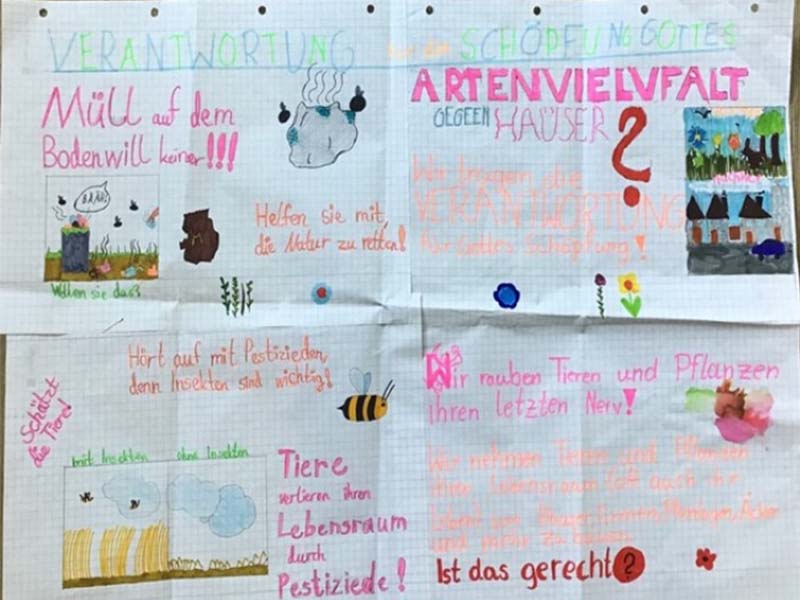 VERANTWORTUNG für die SCHÖPFUNG GOTTES
Müll auf dem
Boden will keiner!!!
BÄÄH!
Wollen sie das?
Helfen sie mit,
die Natur zu retten!
ARTENVIELVFALT
GEGEEN HAÜSER ?
Wir tragen die
VERANTWORTUNG
für Gottes Schöpfung!
Schützt
die Tiere!
Hört auf mit Pestizieden,
denn Insekten sind wichtig!
mit Insekten ohne Insekten
Tiere
verlieren ihren
Lebensraum
durch
Pestiziede!
Wir rauben Tieren und Pflanzen
ihren letzten Nerv!
Wir nehmen Tieren und Pflanzen
ihren Lebensraum
und mehr zu bauen
Ist das gerecht?